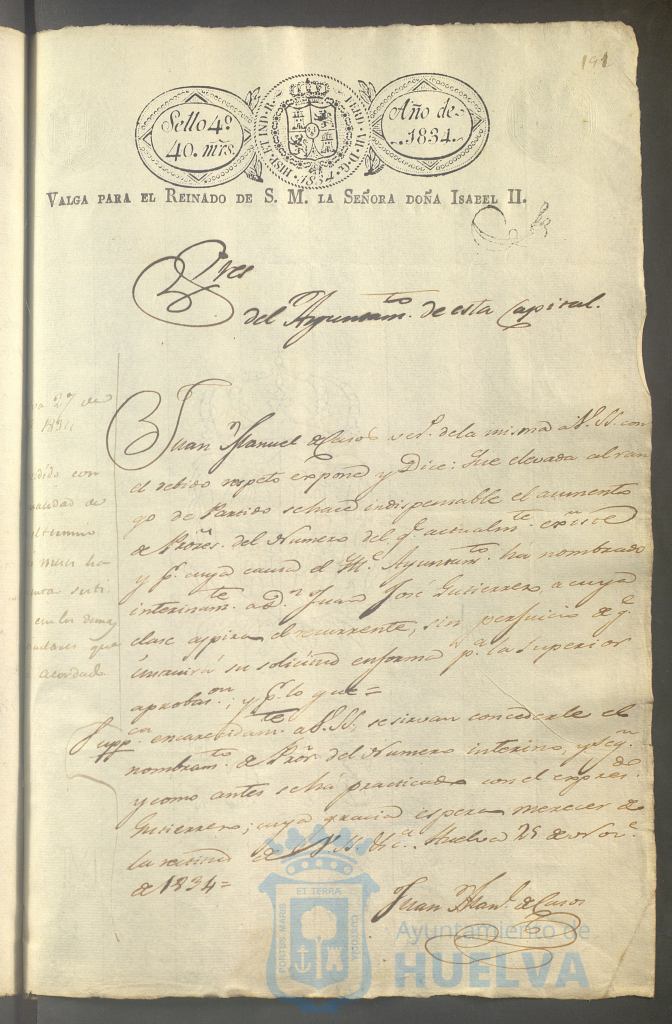 191
Sello 4º
40. mrs.
HISP. ET IND. R. FERD. VII. D. G. 1834.
Año de
1834.
VALGA PARA EL REINADO DE S. M. LA SEÑORA DOÑA ISABEL II.
Sres
del Ayuntamto. de esta Capital.
27 de
1834
con
de
meses ha
en los demas
que
acordado
Juan Manuel de Casos vecº. de la misma a V. SS. con
el debido respeto expone y Dice: Que elevada al ran
go de Partido se hace indispensable el aumento
de Prores. del Numero del q. actualmte. existe
y pr. cuya causa el Ye. Ayuntamto. ha nombrado
interinamte. a Dn. Juan José Gutierrero, a cuya
clase aspira el recurrente, sin perjuicio de q.
su solicitud en forma pa. la Superior
aprobason.; y pr. lo que =
Suppca. encarecidamte. a V. SS. se sirvan concederle el
nombramto. de Pror. del Numero interino, y segn.
y como antes se ha practicado con el expresdo.
Gutierrero; cuya gracia espera merecer de
la rectitud de V. SS. Huelva 25 de Nove.
de 1834 =
Juan Manl. de Casos
PORTUS MARIS ET TERRAE CUSTODIA
Ayuntamiento de
HUELVA